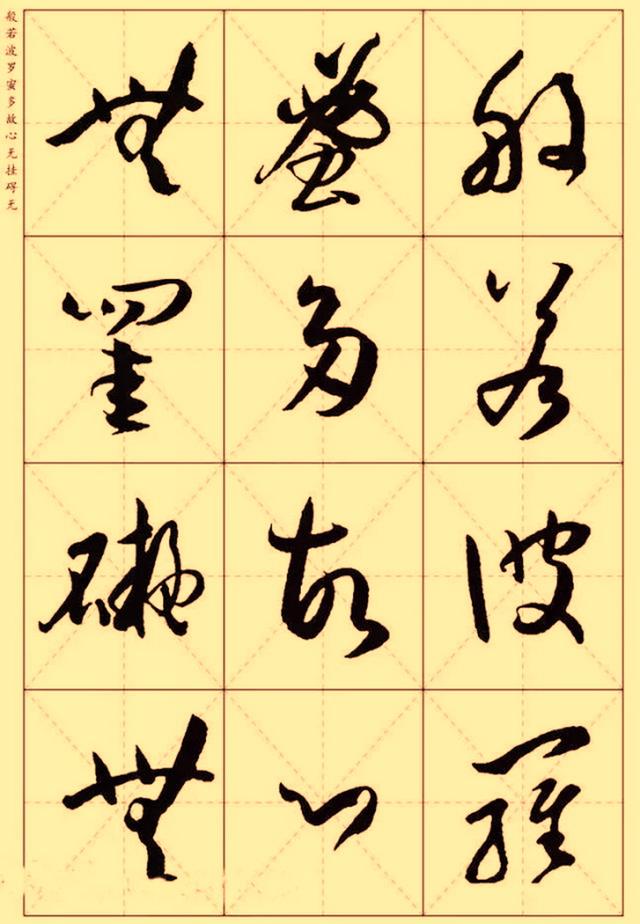 般若波羅
蜜多故心
無罣礙無
般若波罗蜜多故心无挂碍无